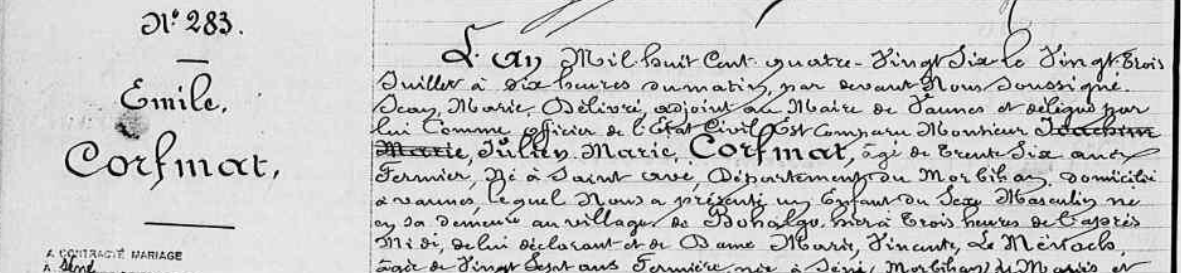 N° 283.
Emile,
Corfmat,
A CONTRACTÉ MARIAGE
à Séné
L'an Mil huit Cent quatre-Vingt Six le Vingt-Trois
Juillet à dix heures du matin, par devant Nous Soussigné.
Jean, Marie, Délivré, adjoint au Maire de Vannes et délégué par
lui Comme officier de l'Etat Civil Est Comparu Monsieur Joachim
Marie, Julien, Marie, Corfmat, âgé de trente Six ans
Fermier, Né à Saint avé, Département du Morbihan, domicilié
à vannes, lequel Nous a présenté un Enfant du Sexe Masculin né
en sa demeure au village de Bohalgo, hier à Trois heures de l'après
Midi, de lui déclarant et de Dame Marie, Vincente, Le
âgée de Vingt Sept ans Fermière, née à Séné, Morbihan,